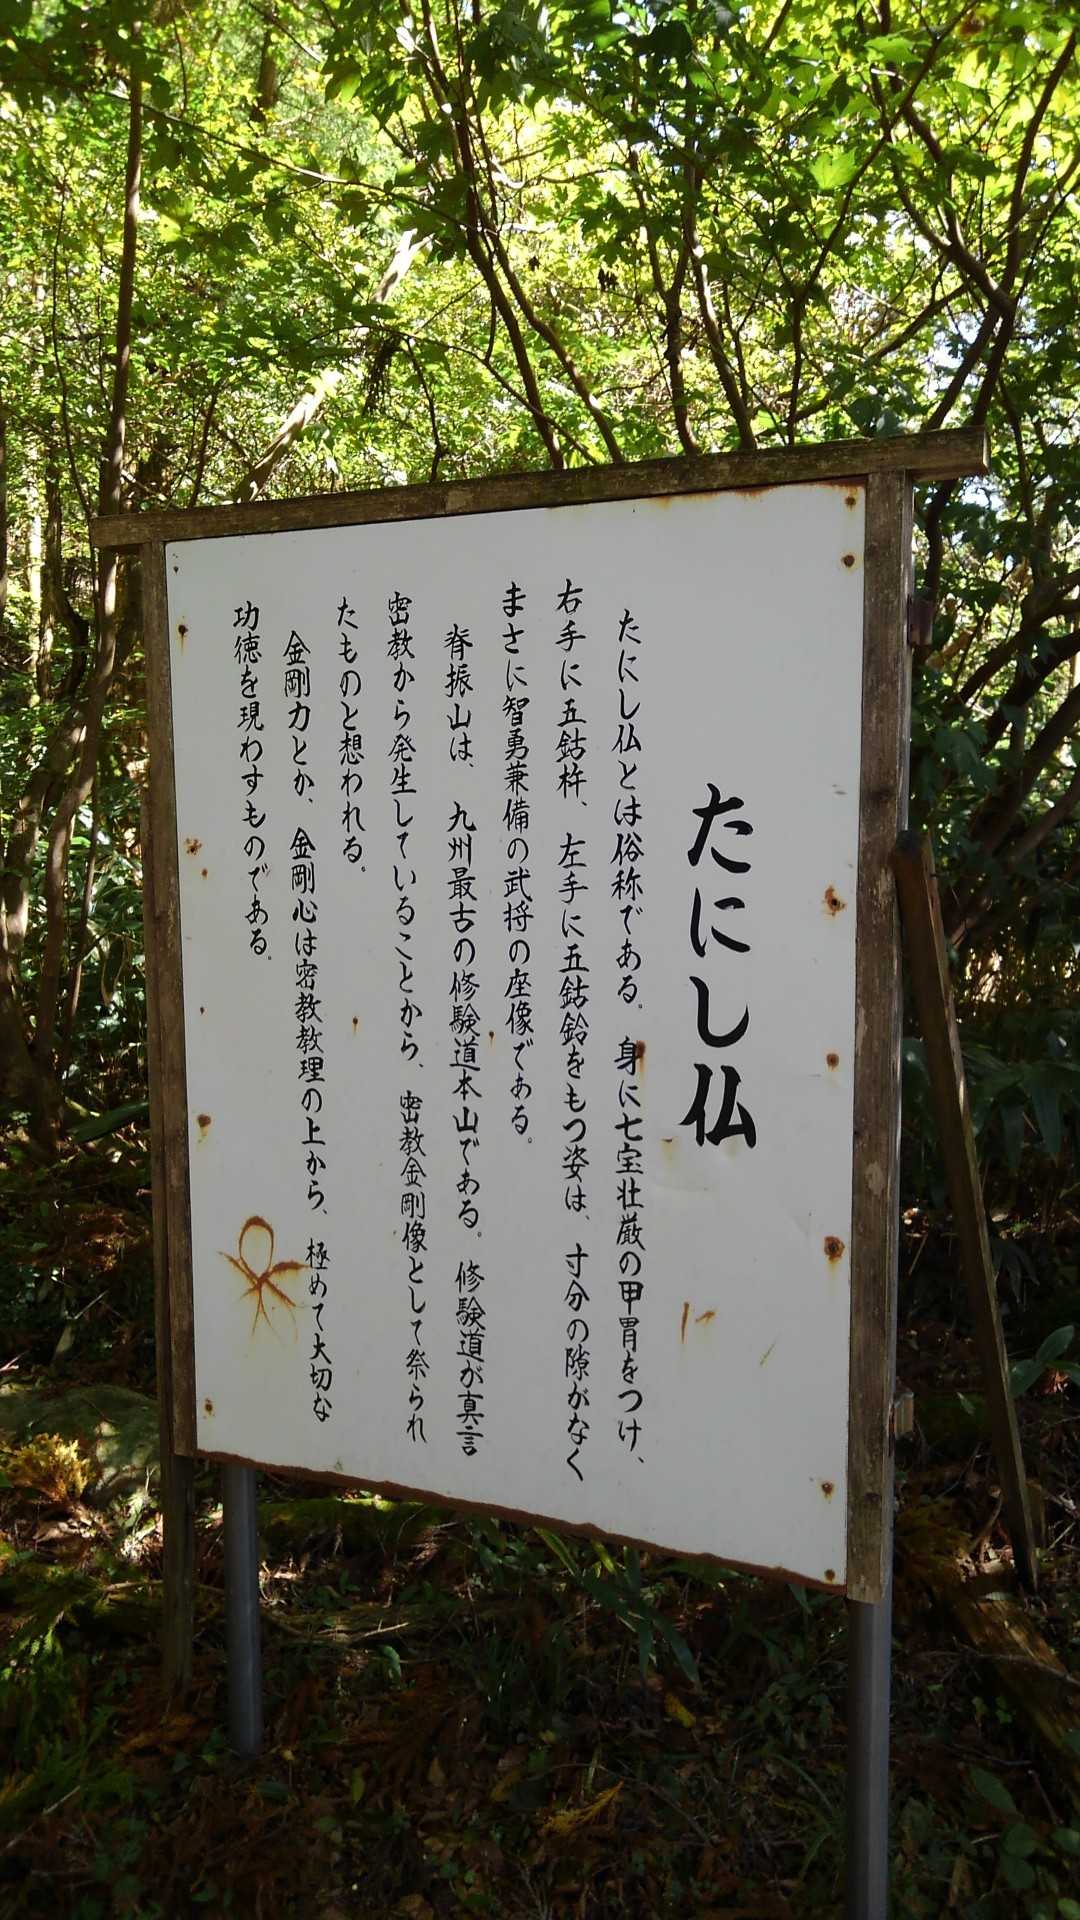 たにし仏
たにし仏とは俗称である。身に七宝壮厳の甲冑をつけ、
右手に五鈷杵、左手に五鈷鈴をもつ姿は、寸分の隙がなく
まさに智勇兼備の武将の座像である。
脊振山は、九州最古の修験道本山である。修験道が真言
密教から発生していることから、密教金剛像として祭られ
たものと想われる。
金剛力とか、金剛心は密教教理の上から、極めて大切な
功徳を現わすものである。